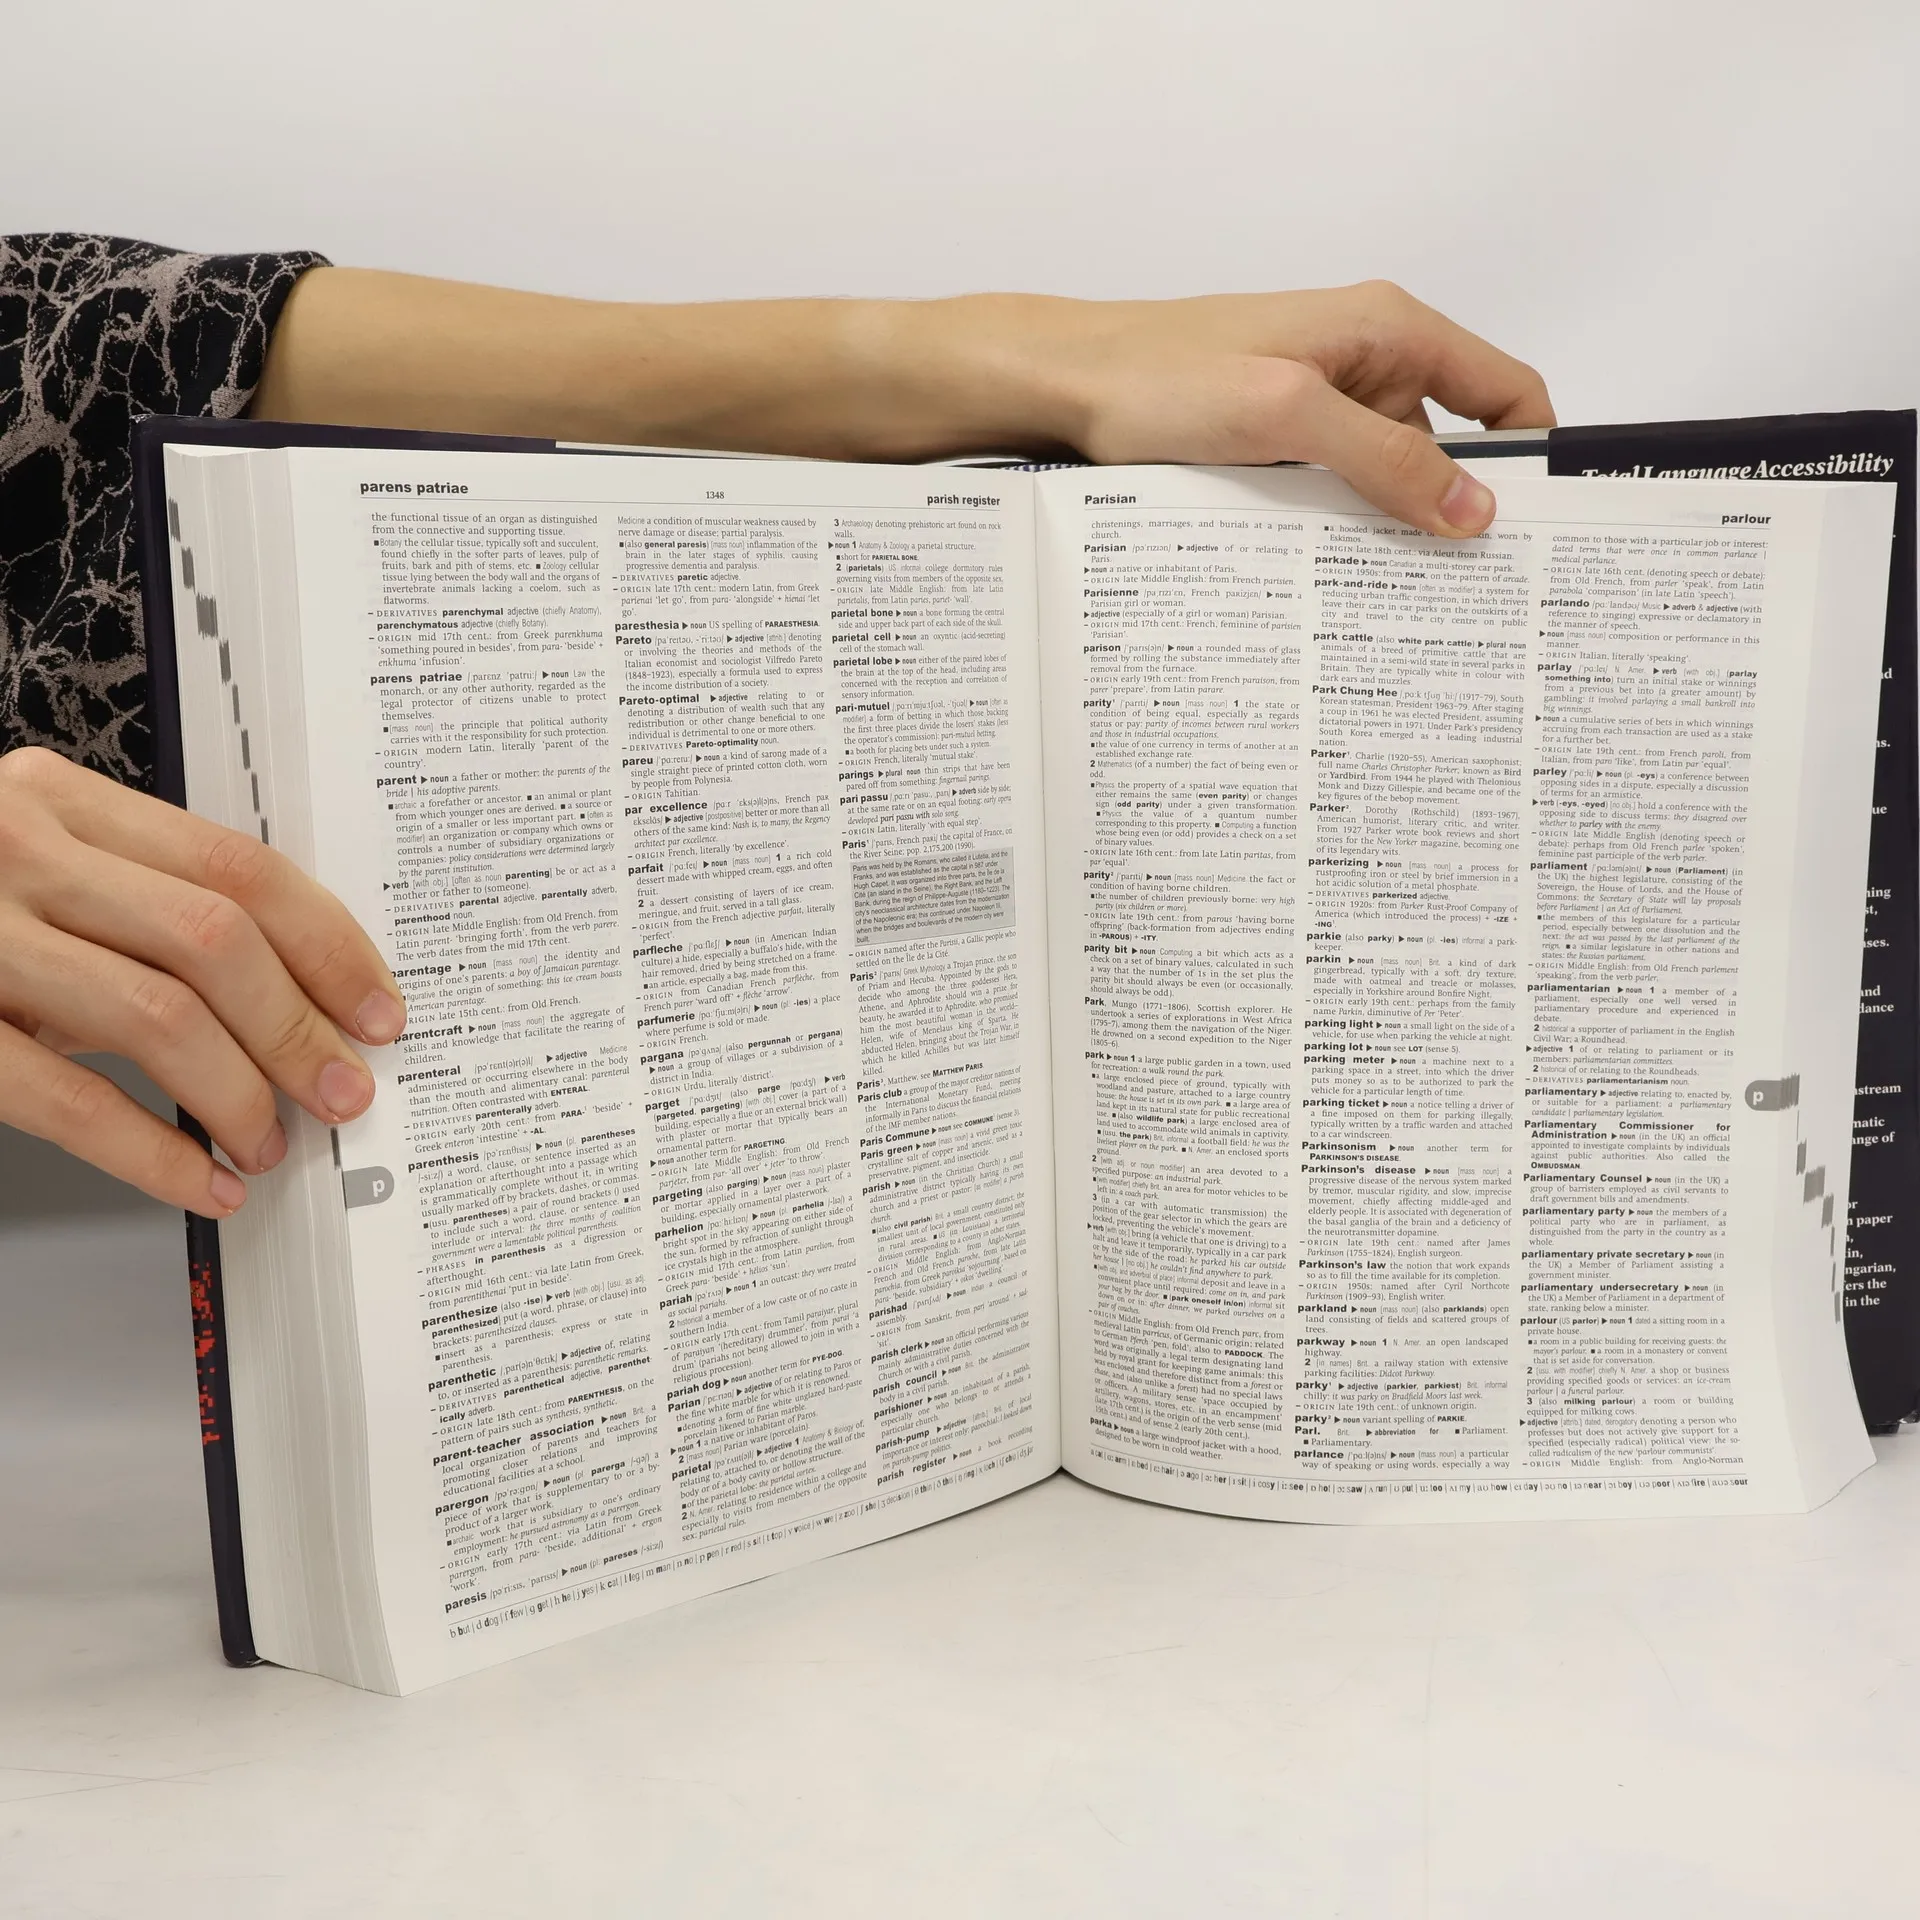 parens patriae
1348
parish register
the functional tissue of an organ as distinguished
from the connective and supporting tissue.
■ Botany the cellular tissue, typically soft and succulent,
found chiefly in the softer parts of leaves, pulp of
fruits, bark and pith of stems, etc. ■ Zoology cellular
tissue lying between the body wall and the organs of
invertebrate animals lacking a coelom, such as
flatworms.
– DERIVATIVES parenchymal adjective (chiefly Anatomy),
parenchymatous adjective (chiefly Botany).
– ORIGIN mid 17th cent.: from Greek parenkhuma
'something poured in besides', from para- 'beside' +
enkhuma 'infusion'.
parens patriae ▶ noun Law the
monarch, or any other authority, regarded as the
legal protector of citizens unable to protect
themselves.
■ [mass noun] the principle that political authority
carries with it the responsibility for such protection.
– ORIGIN modern Latin, literally 'parent of the
country'.
parent ▶ noun a father or mother: the parents of the
bride | his adoptive parents.
■ archaic a forefather or ancestor. ■ an animal or plant
from which younger ones are derived. ■ a source or
origin of a smaller or less important part. ■ [often as
modifier] an organization or company which owns or
controls a number of subsidiary organizations or
companies: policy considerations were determined largely
by the parent institution.
▶ verb [with obj.] [often as noun parenting] be or act as a
mother or father to (someone).
– DERIVATIVES parental adjective, parentally adverb,
parenthood noun.
– ORIGIN late Middle English: from Old French, from
Latin parent- 'bringing forth', from the verb parere.
The verb dates from the mid 17th cent.
parentage ▶ noun [mass noun] the identity and
origins of one's parents: a boy of Jamaican parentage.
■ figurative the origin of something: this ice cream boasts
American parentage.
ORIGIN late 15th cent.: from Old French.
parentcraft ▶ noun [mass noun] the aggregate of
skills and knowledge that facilitate the rearing of
children.
parenteral ▶ adjective Medicine
administered or occurring elsewhere in the body
than the mouth and alimentary canal: parenteral
nutrition. Often contrasted with ENTERAL.
– DERIVATIVES parenterally adverb.
– ORIGIN early 20th cent.: from PARA-¹ 'beside' +
Greek enteron 'intestine' + -AL.
parenthesis ▶ noun (pl. parentheses
) a word, clause, or sentence inserted as an
explanation or afterthought into a passage which
is grammatically complete without it, in writing
usually marked off by brackets, dashes, or commas.
■ (usu. parentheses) a pair of round brackets () used
to include such a word, clause, or sentence. ■ an
interlude or interval: the three months of coalition
government were a lamentable political parenthesis.
– PHRASES in parenthesis as a digression or
afterthought.
– ORIGIN mid 16th cent.: via late Latin from Greek,
from parentithenai 'put in beside'.
parenthesize (also -ise) ▶ verb [with obj.] [usu. as adj.
parenthesized] put (a word, phrase, or clause) into
brackets: parenthesized clauses.
■ insert as a parenthesis; express or state in
parenthesis.
parenthetic ▶ adjective of, relating
to, or inserted as a parenthesis: parenthetic remarks.
– DERIVATIVES parenthetical adjective, parenthet
ically adverb.
– ORIGIN late 18th cent.: from PARENTHESIS, on the
pattern of pairs such as synthesis, synthetic.
parent-teacher association ▶ noun Brit. a
local organization of parents and teachers for
promoting closer relations and improving
educational facilities at a school.
parergon ▶ noun (pl. parerga) a
piece of work that is supplementary to or a by-
product of a larger work.
■ archaic work that is subsidiary to one's ordinary
employment: he pursued astronomy as a parergon.
– ORIGIN early 17th cent.: via Latin from Greek
parergon, from para- 'beside, additional' + ergon
'work'.
paresis ▶ noun (pl. pareses)
Medicine a condition of muscular weakness caused by
nerve damage or disease; partial paralysis.
■ (also general paresis) [mass noun] inflammation of the
brain in the later stages of syphilis, causing
progressive dementia and paralysis.
– DERIVATIVES paretic adjective.
– ORIGIN late 17th cent.: modern Latin, from Greek
parienai 'let go', from para- 'alongside' + hienai 'let
go'.
paresthesia ▶ noun US spelling of PARAESTHESIA.
Pareto ▶ adjective [attrib.] denoting
or involving the theories and methods of the
Italian economist and sociologist Vilfredo Pareto
(1848–1923), especially a formula used to express
the income distribution of a society.
Pareto-optimal ▶ adjective relating to or
denoting a distribution of wealth such that any
redistribution or other change beneficial to one
individual is detrimental to one or more others.
– DERIVATIVES Pareto-optimality noun.
pareu ▶ noun a kind of sarong made of a
single straight piece of printed cotton cloth, worn
by people from Polynesia.
– ORIGIN Tahitian.
par excellence
▶ adjective [postpositive] better or more than all
others of the same kind: Nash is, to many, the Regency
architect par excellence.
– ORIGIN French, literally 'by excellence'.
parfait ▶ noun [mass noun] 1 a rich cold
dessert made with whipped cream, eggs, and often
fruit.
2 a dessert consisting of layers of ice cream,
meringue, and fruit, served in a tall glass.
– ORIGIN from the French adjective parfait, literally
'perfect'.
parfleche ▶ noun (in American Indian
culture) a hide, especially a buffalo's hide, with the
hair removed, dried by being stretched on a frame.
■ an article, especially a bag, made from this.
– ORIGIN from Canadian French parflèche, from
French parer 'ward off' + flèche 'arrow'.
parfumerie ▶ noun (pl. -ies) a place
where perfume is sold or made.
– ORIGIN French.
pargana (also pergunnah or pergana)
▶ noun a group of villages or a subdivision of a
district in India.
– ORIGIN Urdu, literally 'district'.
parget (also parge) ▶ verb
(pargeted, pargeting) [with obj.] cover (a part of a
building, especially a flue or an external brick wall)
with plaster or mortar that typically bears an
ornamental pattern.
▶ noun another term for PARGETING.
– ORIGIN late Middle English: from Old French
parjeter, from par- 'all over' + jeter 'to throw'.
pargeting (also parging) ▶ noun [mass noun] plaster
or mortar applied in a layer over a part of a
building, especially ornamental plasterwork.
parhelion ▶ noun (pl. parhelia) a
bright spot in the sky appearing on either side of
the sun, formed by refraction of sunlight through
ice crystals high in the atmosphere.
– ORIGIN mid 17th cent.: from Latin parelion, from
Greek para- 'beside' + hēlios 'sun'.
pariah ▶ noun 1 an outcast: they were treated
as social pariahs.
2 historical a member of a low caste or of no caste in
southern India.
– ORIGIN early 17th cent.: from Tamil paraiyar, plural
of paraiyan '(hereditary) drummer', from parai 'a
drum' (pariahs not being allowed to join in with a
religious procession).
pariah dog ▶ noun another term for PYE-DOG.
Parian ▶ adjective of or relating to Paros or
the fine white marble for which it is renowned.
■ denoting a form of fine white unglazed hard-paste
porcelain likened to Parian marble.
▶ noun 1 a native or inhabitant of Paros.
2 [mass noun] Parian ware (porcelain).
parietal ▶ adjective 1 Anatomy & Biology of,
relating to, attached to, or denoting the wall of the
body or of a body cavity or hollow structure.
■ of the parietal lobe: the parietal cortex.
2 N. Amer. relating to residence within a college and
especially to visits from members of the opposite
sex: parietal rules.
3 Archaeology denoting prehistoric art found on rock
walls.
▶ noun 1 Anatomy & Zoology a parietal structure.
■ short for PARIETAL BONE.
2 (parietals) US informal college dormitory rules
governing visits from members of the opposite sex.
– ORIGIN late Middle English: from late Latin
parietalis, from Latin paries, pariet- 'wall'.
parietal bone ▶ noun a bone forming the central
side and upper back part of each side of the skull.
parietal cell ▶ noun an oxyntic (acid-secreting)
cell of the stomach wall.
parietal lobe ▶ noun either of the paired lobes of
the brain at the top of the head, including areas
concerned with the reception and correlation of
sensory information.
pari-mutuel ▶ noun [often as
modifier] a form of betting in which those backing
the first three places divide the losers' stakes (less
the operator's commission): pari-mutuel betting.
■ a booth for placing bets under such a system.
– ORIGIN French, literally 'mutual stake'.
parings ▶ plural noun thin strips that have been
pared off from something: fingernail parings.
pari passu ▶ adverb side by side;
at the same rate or on an equal footing: early opera
developed pari passu with solo song.
– ORIGIN Latin, literally 'with equal step'.
Paris¹ the capital of France, on
the River Seine; pop. 2,175,200 (1990).
Paris was held by the Romans, who called it Lutetia, and the
Franks, and was established as the capital in 987 under
Hugh Capet. It was organized into three parts, the Île de la
Cité (an island in the Seine), the Right Bank, and the Left
Bank, during the reign of Philippe-Auguste (1180–1223). The
city's neoclassical architecture dates from the modernization
of the Napoleonic era; this continued under Napoleon III,
when the bridges and boulevards of the modern city were
built.
– ORIGIN named after the Parisii, a Gallic people who
settled on the Île de la Cité.
Paris² Greek Mythology a Trojan prince, the son
of Priam and Hecuba. Appointed by the gods to
decide who among the three goddesses Hera,
Athene, and Aphrodite should win a prize for
beauty, he awarded it to Aphrodite, who promised
him the most beautiful woman in the world—
Helen, wife of Menelaus king of Sparta. He
abducted Helen, bringing about the Trojan War, in
which he killed Achilles but was later himself
killed.
Paris³, Matthew, see MATTHEW PARIS.
Paris club a group of the major creditor nations of
the International Monetary Fund, meeting
informally in Paris to discuss the financial relations
of the IMF member countries.
Paris Commune ▶ noun see COMMUNE (sense 3).
Paris green ▶ noun [mass noun] a vivid green toxic
crystalline salt of copper and arsenic, used as a
preservative, pigment, and insecticide.
parish ▶ noun (in the Christian Church) a small
administrative district typically having its own
church and a priest or pastor: [as modifier] a parish
church.
■ (also civil parish) Brit. a small country district, the
smallest unit of local government, constituted only
in rural areas. ■ US (in Louisiana) a territorial
division corresponding to a county in other states.
– ORIGIN Middle English: from Anglo-Norman
French and Old French paroche, from late Latin
parochia, from Greek paroikia 'sojourning', based on
para- 'beside, subsidiary' + oikos 'dwelling'.
parishad ▶ noun Indian a council or
assembly.
– ORIGIN from Sanskrit, from pari 'around' + sad-
'sit'.
parish clerk ▶ noun an official performing various
mainly administrative duties concerned with the
Church or with a civil parish.
parish council ▶ noun Brit. the administrative
body in a civil parish.
parishioner ▶ noun an inhabitant of a parish,
especially one who belongs to or attends a
particular church.
parish-pump ▶ adjective [attrib.] Brit. of local
importance or interest only; parochial: I looked down
on parish-pump politics.
parish register ▶ noun a book recording
b but | d dog | f few | g get | h he | j yes | k cat | l leg | m man | n no | p pen | r red | s sit | t top | v voice | w we | z zoo | ʃ she | ʒ decision | θ thin | ð this | ŋ ring | x loch | tʃ chip | dʒ jar
p
Parisian
parlour
christenings, marriages, and burials at a parish
church.
Parisian /pəˈrɪzɪən/ ▶ adjective of or relating to
Paris.
▶ noun a native or inhabitant of Paris.
– ORIGIN late Middle English: from French parisien.
Parisienne ▶ noun a
Parisian girl or woman.
▶ adjective (especially of a girl or woman) Parisian.
– ORIGIN mid 17th cent.: French, feminine of parisien
'Parisian'.
parison ▶ noun a rounded mass of glass
formed by rolling the substance immediately after
removal from the furnace.
– ORIGIN early 19th cent.: from French paraison, from
parer 'prepare', from Latin parare.
parity¹ /ˈparɪti/ ▶ noun [mass noun] 1 the state or
condition of being equal, especially as regards
status or pay: parity of incomes between rural workers
and those in industrial occupations.
■ the value of one currency in terms of another at an
established exchange rate.
2 Mathematics (of a number) the fact of being even or
odd.
■ Physics the property of a spatial wave equation that
either remains the same (even parity) or changes
sign (odd parity) under a given transformation.
■ Physics the value of a quantum number
corresponding to this property. ■ Computing a function
whose being even (or odd) provides a check on a set
of binary values.
– ORIGIN late 16th cent.: from late Latin paritas, from
par 'equal'.
parity² /ˈparɪti/ ▶ noun [mass noun] Medicine the fact or
condition of having borne children.
■ the number of children previously borne: very high
parity (six children or more).
– ORIGIN late 19th cent.: from parous 'having borne
offspring' (back-formation from adjectives ending
in -PAROUS) + -ITY.
parity bit ▶ noun Computing a bit which acts as a
check on a set of binary values, calculated in such
a way that the number of 1s in the set plus the
parity bit should always be even (or occasionally,
should always be odd).
Park, Mungo (1771–1806), Scottish explorer. He
undertook a series of explorations in West Africa
(1795–7), among them the navigation of the Niger.
He drowned on a second expedition to the Niger
(1805–6).
park ▶ noun 1 a large public garden in a town, used
for recreation: a walk round the park.
■ a large enclosed piece of ground, typically with
woodland and pasture, attached to a large country
house: the house is set in its own park. ■ a large area of
land kept in its natural state for public recreational
use. ■ (also wildlife park) a large enclosed area of
land used to accommodate wild animals in captivity.
■ (usu. the park) Brit. informal a football field: he was the
liveliest player on the park. ■ N. Amer. an enclosed sports
ground.
2 [with adj. or noun modifier] an area devoted to a
specified purpose: an industrial park.
■ [with modifier] chiefly Brit. an area for motor vehicles to be
left in: a coach park.
3 (in a car with automatic transmission) the
position of the gear selector in which the gears are
locked, preventing the vehicle's movement.
▶ verb bring (a vehicle that one is driving) to a
halt and leave it temporarily, typically in a car park
or by the side of the road: he parked his car outside
her house | [no obj.] he couldn't find anywhere to park.
■ [with obj. and adverbial of place] informal deposit and leave in a
convenient place until required: come on in, and park
your bag by the door. ■ (park oneself in/on) informal sit
down on or in: after dinner, we parked ourselves on a
pair of couches.
– ORIGIN Middle English: from Old French parc, from
medieval Latin parricus, of Germanic origin; related
to German Pferch 'pen, fold', also to PADDOCK. The
word was originally a legal term designating land
held by royal grant for keeping game animals: this
was enclosed and therefore distinct from a forest or
chase, and (also unlike a forest) had no special laws
or officers. A military sense 'space occupied by
artillery, wagons, stores, etc., in an encampment'
(late 17th cent.) is the origin of the verb sense (mid
19th cent.) and of sense 2 (early 20th cent.).
parka ▶ noun a large windproof jacket with a hood,
designed to be worn in cold weather.
■ a hooded jacket made of skin, worn by
Eskimos.
– ORIGIN late 18th cent.: via Aleut from Russian.
parkade ▶ noun Canadian a multi-storey car park.
– ORIGIN 1950s: from PARK, on the pattern of arcade.
park-and-ride ▶ noun [often as modifier] a system for
reducing urban traffic congestion, in which drivers
leave their cars in car parks on the outskirts of a
city and travel to the city centre on public
transport.
park cattle (also white park cattle) ▶ plural noun
animals of a breed of primitive cattle that are
maintained in a semi-wild state in several parks in
Britain. They are typically white in colour with
dark ears and muzzles.
Park Chung Hee (1917–79), South
Korean statesman, President 1963–79. After staging
a coup in 1961 he was elected President, assuming
dictatorial powers in 1971. Under Park's presidency
South Korea emerged as a leading industrial
nation.
Parker¹, Charlie (1920–55), American saxophonist;
full name Charles Christopher Parker; known as Bird
or Yardbird. From 1944 he played with Thelonious
Monk and Dizzy Gillespie, and became one of the
key figures of the bebop movement.
Parker², Dorothy (Rothschild) (1893–1967),
American humorist, literary critic, and writer.
From 1927 Parker wrote book reviews and short
stories for the New Yorker magazine, becoming one
of its legendary wits.
parkerizing ▶ noun [mass noun] a process for
rustproofing iron or steel by brief immersion in a
hot acidic solution of a metal phosphate.
– DERIVATIVES parkerized adjective.
– ORIGIN 1920s: from Parker Rust-Proof Company of
America (which introduced the process) + -IZE +
-ING¹.
parkie (also parky) ▶ noun (pl. -ies) informal a park-
keeper.
parkin ▶ noun [mass noun] Brit. a kind of dark
gingerbread, typically with a soft, dry texture,
made with oatmeal and treacle or molasses,
especially in Yorkshire around Bonfire Night.
– ORIGIN early 19th cent.: perhaps from the family
name Parkin, diminutive of Per 'Peter'.
parking light ▶ noun a small light on the side of a
vehicle, for use when parking the vehicle at night.
parking lot ▶ noun see LOT (sense 5).
parking meter ▶ noun a machine next to a
parking space in a street, into which the driver
puts money so as to be authorized to park the
vehicle for a particular length of time.
parking ticket ▶ noun a notice telling a driver of
a fine imposed on them for parking illegally,
typically written by a traffic warden and attached
to a car windscreen.
Parkinsonism ▶ noun another term for
PARKINSON'S DISEASE.
Parkinson's disease ▶ noun [mass noun] a
progressive disease of the nervous system marked
by tremor, muscular rigidity, and slow, imprecise
movement, chiefly affecting middle-aged and
elderly people. It is associated with degeneration of
the basal ganglia of the brain and a deficiency of
the neurotransmitter dopamine.
– ORIGIN late 19th cent.: named after James
Parkinson (1755–1824), English surgeon.
Parkinson's law the notion that work expands
so as to fill the time available for its completion.
– ORIGIN 1950s: named after Cyril Northcote
Parkinson (1909–93), English writer.
parkland ▶ noun [mass noun] (also parklands) open
land consisting of fields and scattered groups of
trees.
parkway ▶ noun 1 N. Amer. an open landscaped
highway.
2 [in names] Brit. a railway station with extensive
parking facilities: Didcot Parkway.
parky¹ ▶ adjective (parkier, parkiest) Brit. informal
chilly: it was parky on Bradfield Moors last week.
– ORIGIN late 19th cent.: of unknown origin.
parky² ▶ noun variant spelling of PARKIE.
Parl. Brit. ▶ abbreviation for ■ Parliament.
■ Parliamentary.
parlance /ˈpɑːl(ə)ns/ ▶ noun [mass noun] a particular
way of speaking or using words, especially a way
common to those with a particular job or interest:
dated terms that were once in common parlance |
medical parlance.
– ORIGIN late 16th cent. (denoting speech or debate):
from Old French, from parler 'speak', from Latin
parabola 'comparison' (in late Latin 'speech').
parlando Music ▶ adverb & adjective (with
reference to singing) expressive or declamatory in
the manner of speech.
▶ noun [mass noun] composition or performance in this
manner.
– ORIGIN Italian, literally 'speaking'.
parlay N. Amer. ▶ verb [with obj.] (parlay
something into) turn an initial stake or winnings
from a previous bet into (a greater amount) by
gambling: it involved parlaying a small bankroll into
big winnings.
▶ noun a cumulative series of bets in which winnings
accruing from each transaction are used as a stake
for a further bet.
– ORIGIN late 19th cent.: from French paroli, from
Italian, from paro 'like', from Latin par 'equal'.
parley /ˈpɑːli/ ▶ noun (pl. -eys) a conference between
opposing sides in a dispute, especially a discussion
of terms for an armistice.
▶ verb (-eys, -eyed) [no obj.] hold a conference with the
opposing side to discuss terms: they disagreed over
whether to parley with the enemy.
– ORIGIN late Middle English (denoting speech or
debate): perhaps from Old French parlee 'spoken',
feminine past participle of the verb parler.
parliament ▶ noun (Parliament) (in
the UK) the highest legislature, consisting of the
Sovereign, the House of Lords, and the House of
Commons: the Secretary of State will lay proposals
before Parliament | an Act of Parliament.
■ the members of this legislature for a particular
period, especially between one dissolution and the
next: the act was passed by the last parliament of the
reign. ■ a similar legislature in other nations and
states: the Russian parliament.
– ORIGIN Middle English: from Old French parlement
'speaking', from the verb parler.
parliamentarian ▶ noun 1 a member of a
parliament, especially one well versed in
parliamentary procedure and experienced in
debate.
2 historical a supporter of parliament in the English
Civil War; a Roundhead.
▶ adjective 1 of or relating to parliament or its
members: parliamentarian committees.
2 historical of or relating to the Roundheads.
– DERIVATIVES parliamentarianism noun.
parliamentary ▶ adjective relating to, enacted by,
or suitable for a parliament: a parliamentary
candidate | parliamentary legislation.
Parliamentary Commissioner for
Administration ▶ noun (in the UK) an official
appointed to investigate complaints by individuals
against public authorities. Also called the
OMBUDSMAN.
Parliamentary Counsel ▶ noun (in the UK) a
group of barristers employed as civil servants to
draft government bills and amendments.
parliamentary party ▶ noun the members of a
political party who are in parliament, as
distinguished from the party in the country as a
whole.
parliamentary private secretary ▶ noun (in
the UK) a Member of Parliament assisting a
government minister.
parliamentary undersecretary ▶ noun (in
the UK) a Member of Parliament in a department of
state, ranking below a minister.
parlour (US parlor) ▶ noun 1 dated a sitting room in a
private house.
■ a room in a public building for receiving guests: the
mayor's parlour. ■ a room in a monastery or convent
that is set aside for conversation.
2 [usu. with modifier] chiefly N. Amer. a shop or business
providing specified goods or services: an ice-cream
parlour | a funeral parlour.
3 (also milking parlour) a room or building
equipped for milking cows.
▶ adjective [attrib.] dated, derogatory denoting a person who
professes but does not actively give support for a
specified (especially radical) political view: the so-
called radicalism of the new 'parlour communists'.
– ORIGIN Middle English: from Anglo-Norman
a cat | ɑː arm | ɛ bed | ɛː hair | ə ago | əː her | ɪ sit | i cosy | iː see | ɒ hot | ɔː saw | ʌ run | ʊ put | uː too | ʌɪ my | aʊ how | eɪ day | əʊ no | ɪə near | ɔɪ boy | ʊə poor | ʌɪə fire | aʊə sour
p
Total Language Accessibility
paper
in the